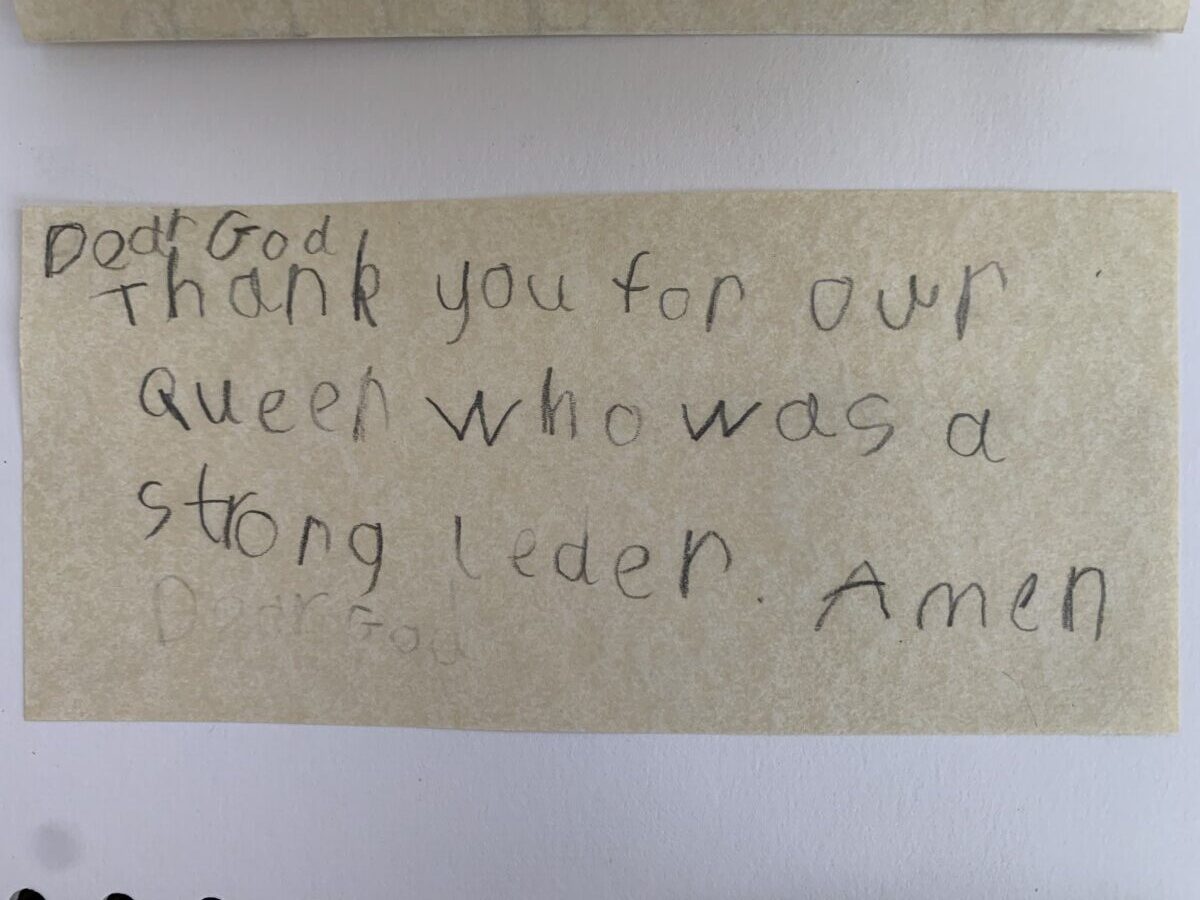 Dear God
Thank you for our
Queen who was a
strong leder. Amen
Dear God